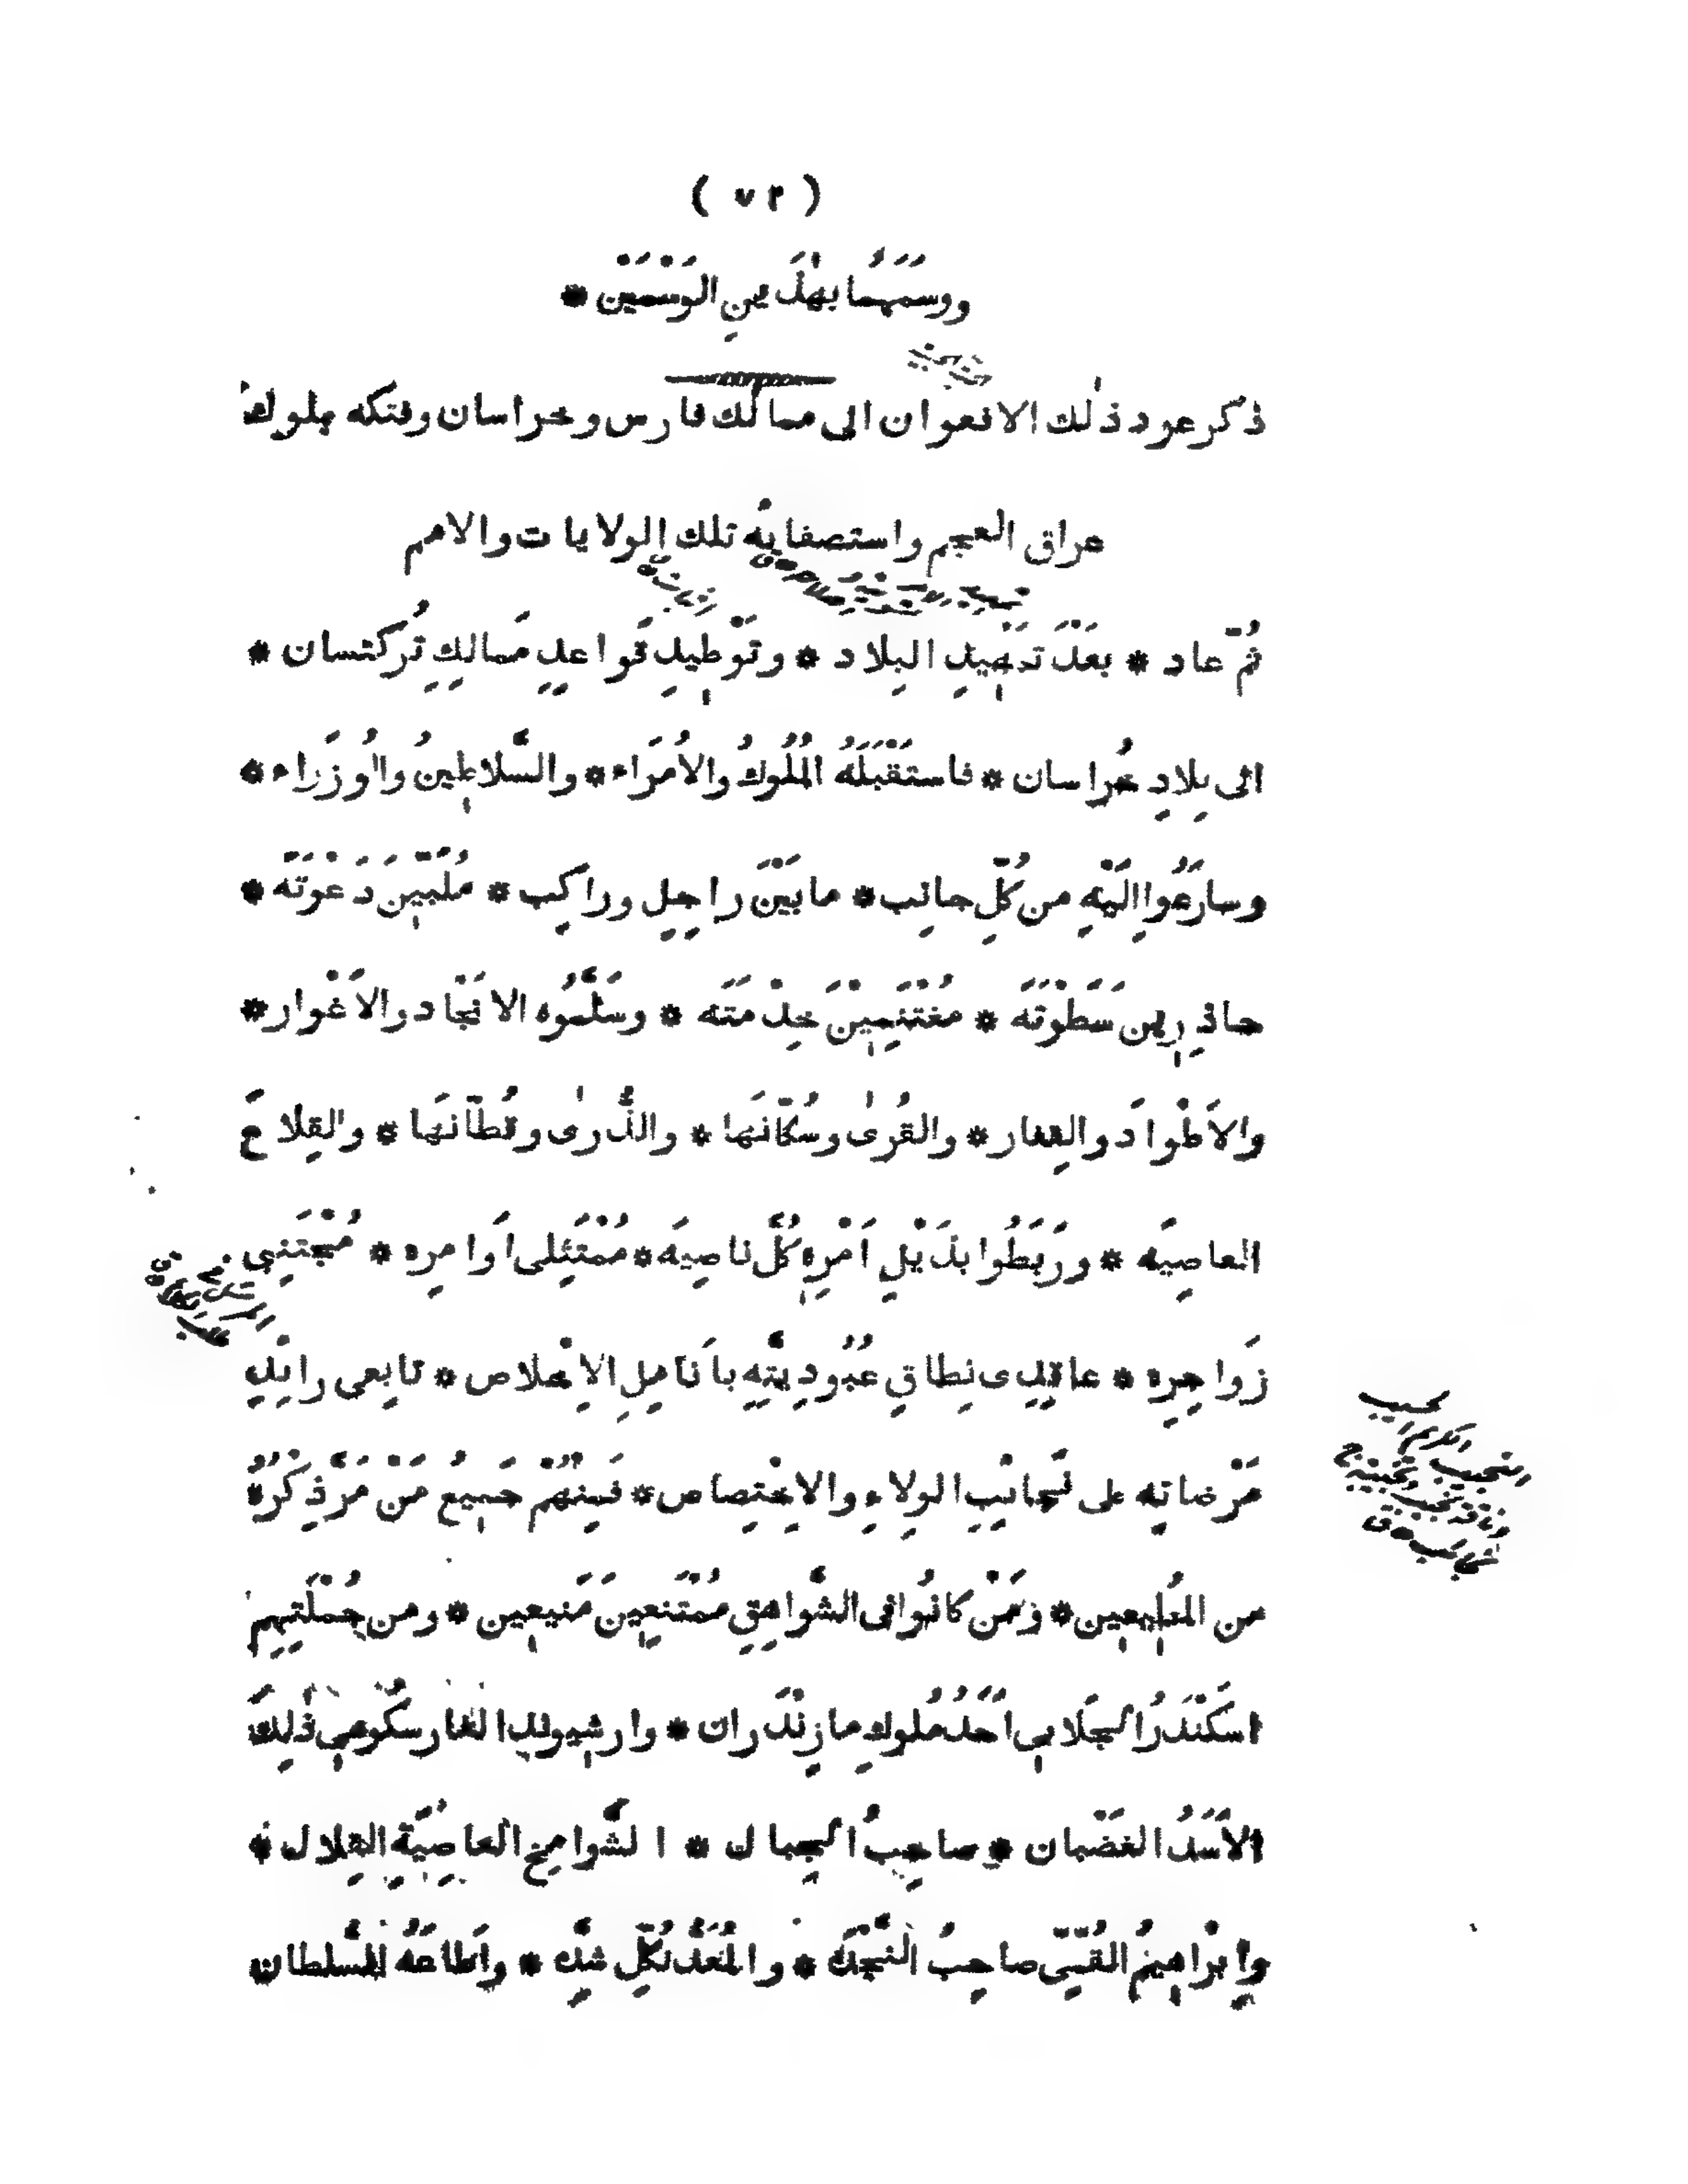 ( ٧٢ )
ووسَمَهُما بهٰذَينِ الوَسْمَيْن *
ذكر عود ذٰلك الافعوان الى ممالك فارس وخراسان وفتكه بملوك
عراق العجم واستصفايه تلك الولايات والامم
ثُمّ عاد * بعْدَ تمْهيدِ البِلاد * وتوْطيدِ قَواعدِ مَمالِكِ تُركستان *
الى بِلادِ خُراسان * فاستَقْبَلَهُ المُلُوكُ والاُمَراء * والسَّلاطينُ والوُزَراء *
وسارَعُوا اليْهِ من كُلِّ جانِب * ما بَيْنَ راجِلٍ وراكِب * مُلَبّيْنَ دَعْوَتَه *
حاذِرينَ سَطْوَتَه * مُغْتَنِميْنَ خِدْمَتَه * وسَلَّمُوه الانْجَاد والاَغْوار *
والاَطْوادَ والقِفار * والقُرىٰ وسُكّانَها * والذُّرىٰ وقُطّانَها * والقِلاعَ
العاصِيَه * ورَبَطُوا بذَيْلِ اَمْرِهِ كُلَّ ناصِيَه * مُمْتَثِلى اَوامِرِه * مُجْتَنِبى
زَواجِرِه * عاقِدِى نِطاقِ عُبُودِيَّتِه باَنامِلِ الاِخْلاص * تابِعى رائِدِ
مَرْضاتِه على نَجائِبِ الوِلاءِ والاِخْتِصاص * فمِنْهُم جَميعُ مَنْ مَرَّ ذِكْرُهُ
من المُتابِعين * ومَنْ كانُوا فى الشَّواهِقِ مُمْتَنِعينَ مَنيعين * ومن جُمْلَتِهِم
اسكَنْدَرُ الجَلابى اَحَدُ مُلوكِ مازِنْدَران * وارشيوند الفارسكُوهى ذٰلِكَ
الاَسَدُ الغَضْبان * صاحِبُ الجِبال * الشَّوامِخِ العاصِيَةِ القِلال *
وابْراهيمُ القُمّىّ صاحِبُ النَّجْدَه * والمُعَدُّ لكُلِّ شِدَّه * واَطاعَهُ السُّلطان